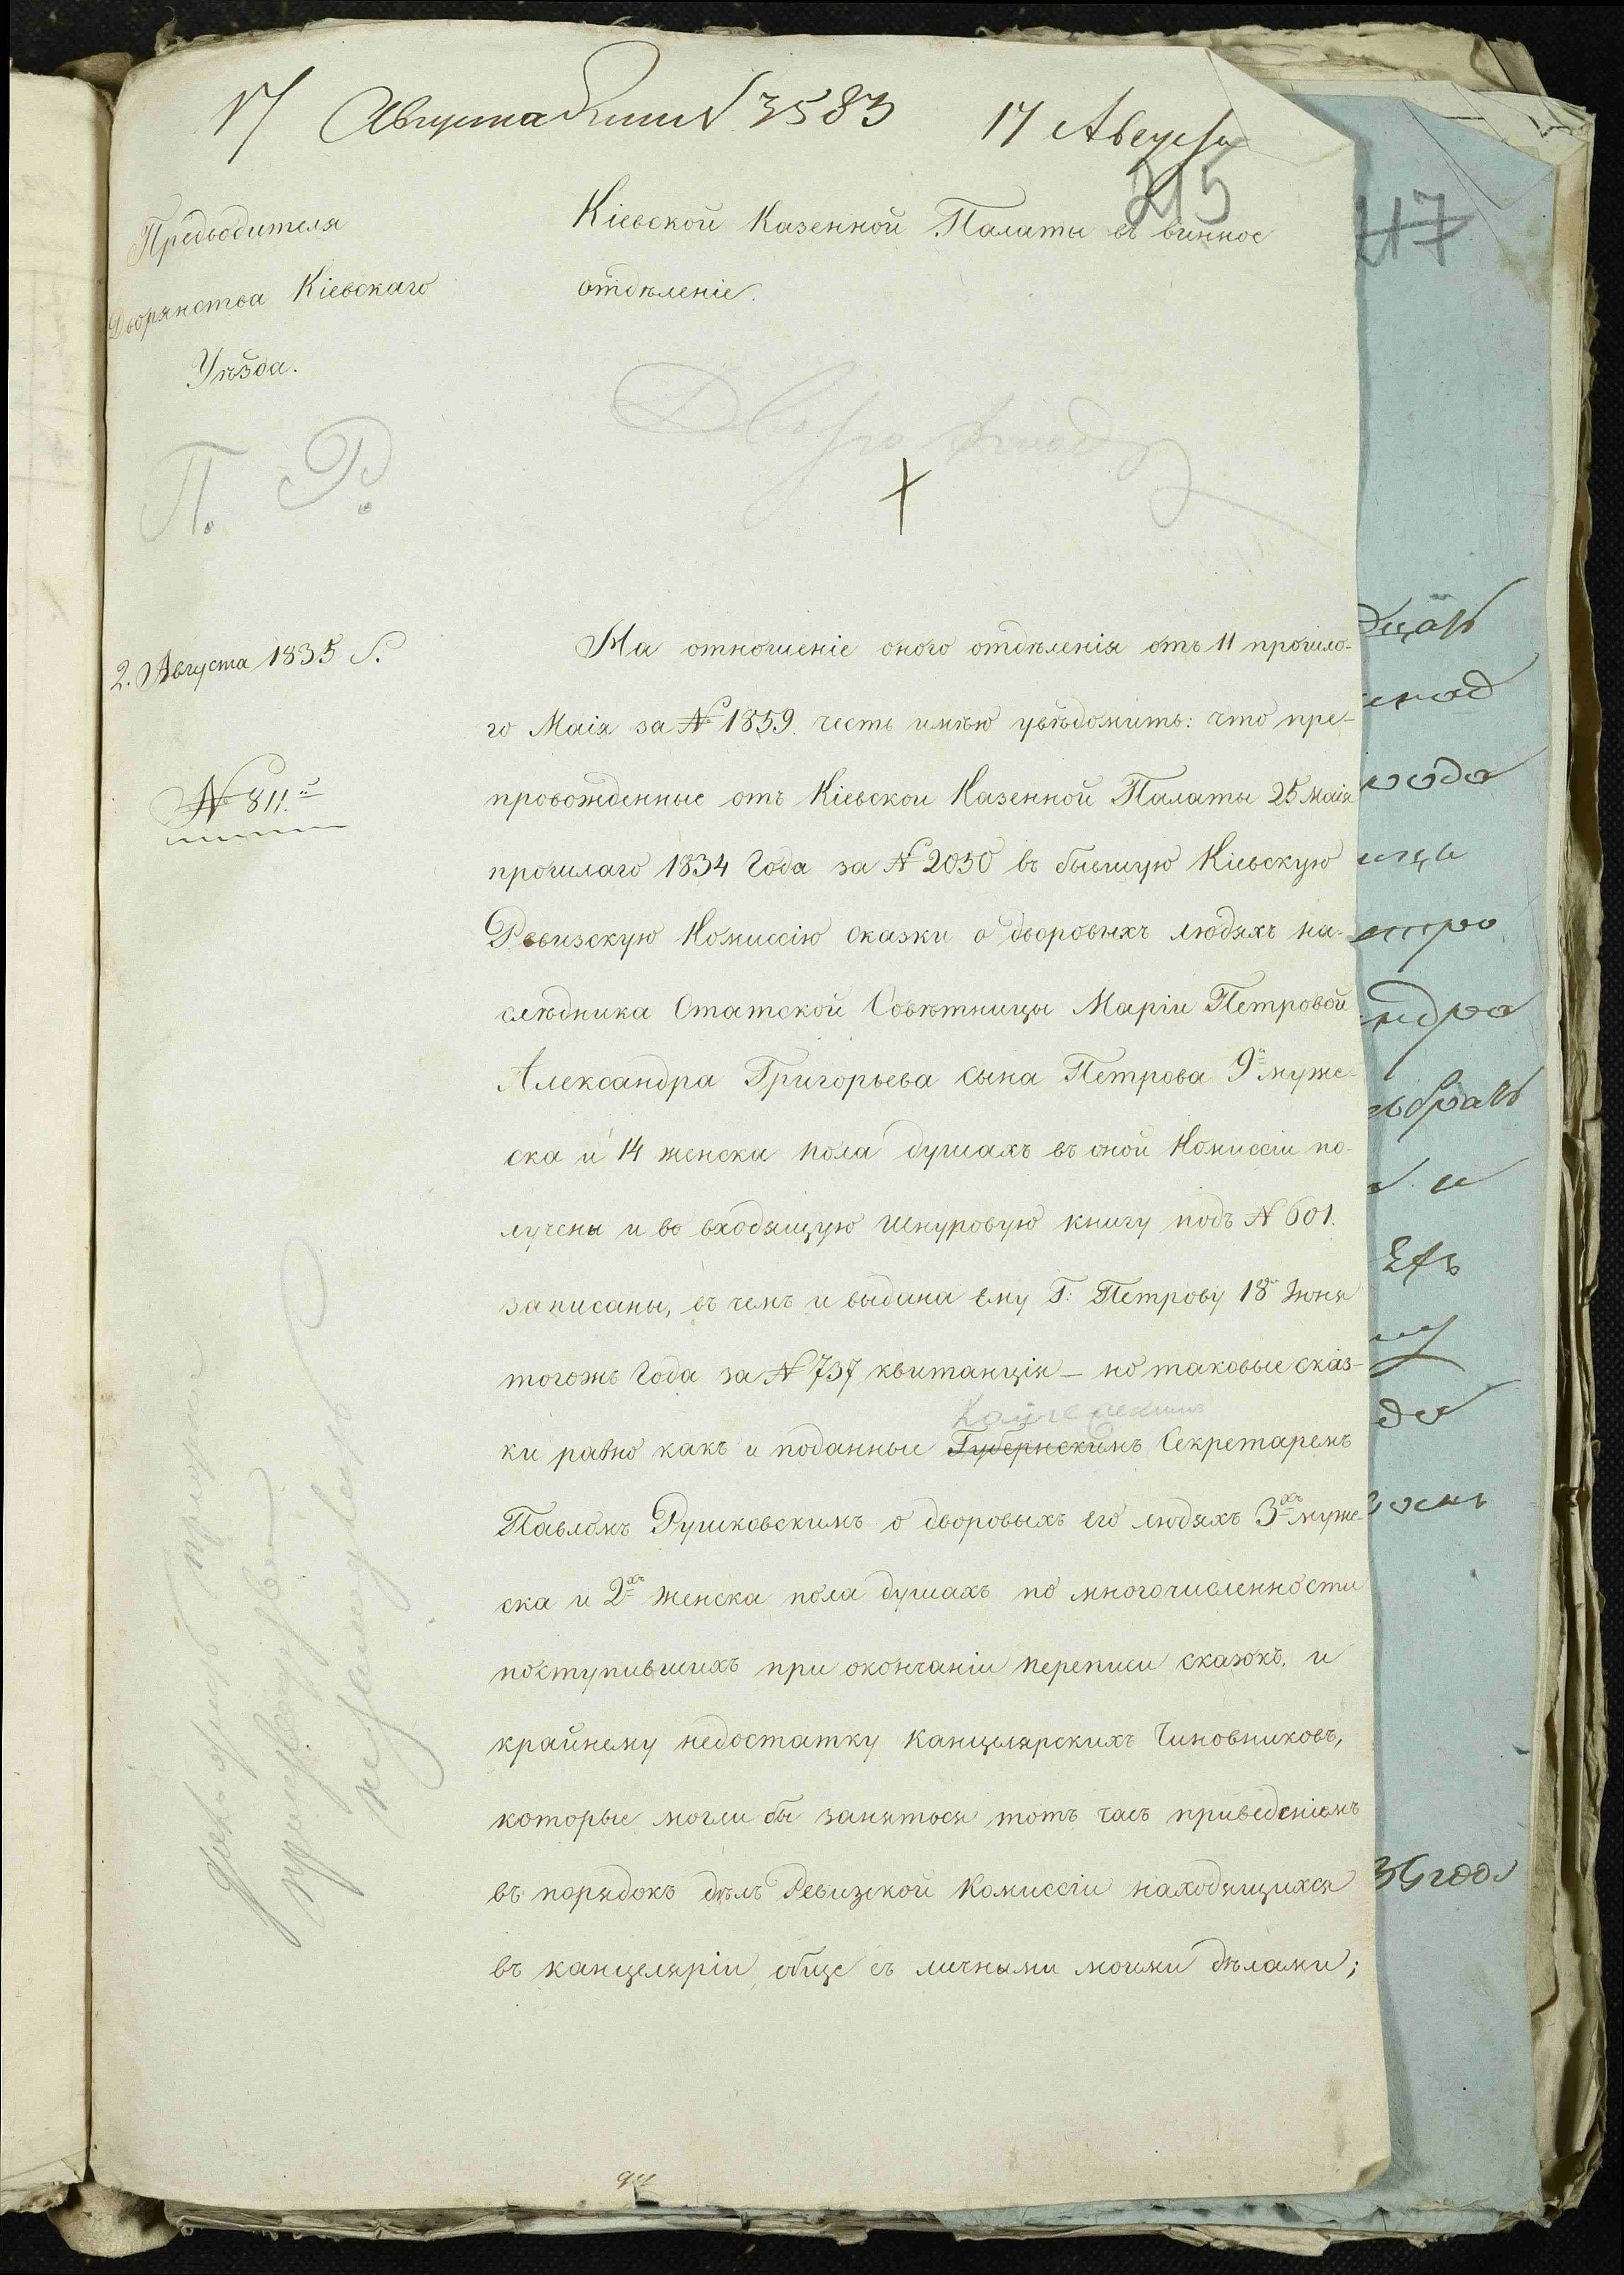 17 Августа № 3583 17 Августа
215
Предводителя
Дворянства Кіевскаго
Уѣзда.
Кіевской Казенной Палаты въ винное
отдѣленіе.
П. Р.
2. Августа 1835 г.
№ 811.
На отношеніе оного отдѣленія отъ 11 прошло-
го Маія за № 1859. честь имѣю увѣдомить: что пре-
провожденные отъ Кіевской Казенной Палаты 25 маія
прошлаго 1834 Года за № 2050 въ бывшую Кіевскую
Ревизскую Комиссію сказки о дворовыхъ людяхъ на-
слѣдника Статской Совѣтницы Маріи Петровой
Александра Григорьева сына Петрова 9и муже-
ска и 14 женска пола душахъ въ оной Комиссіи по-
лучены и во входящую шнуровую книгу подъ № 601.
записаны, въ чемъ и выдана ему Г: Петрову 18 Іюня
тогожъ Года за № 737 квитанція – но таковые сказ-
ки равно какъ и поданные Губернскимъ Секретаремъ
Павломъ Рушковскимъ о дворовыхъ его людяхъ 3хъ муже-
ска и 2хъ женска пола душахъ по многочисленности
поступившихъ при окончаніи переписи сказокъ, и
крайнему недостатку Канцелярскихъ Чиновниковъ,
которые могли бы заняться тотъ часъ приведеніемъ
въ порядокъ дѣлъ Ревизской Комиссіи находящихся
въ канцеляріи обще съ личными моими дѣлами;